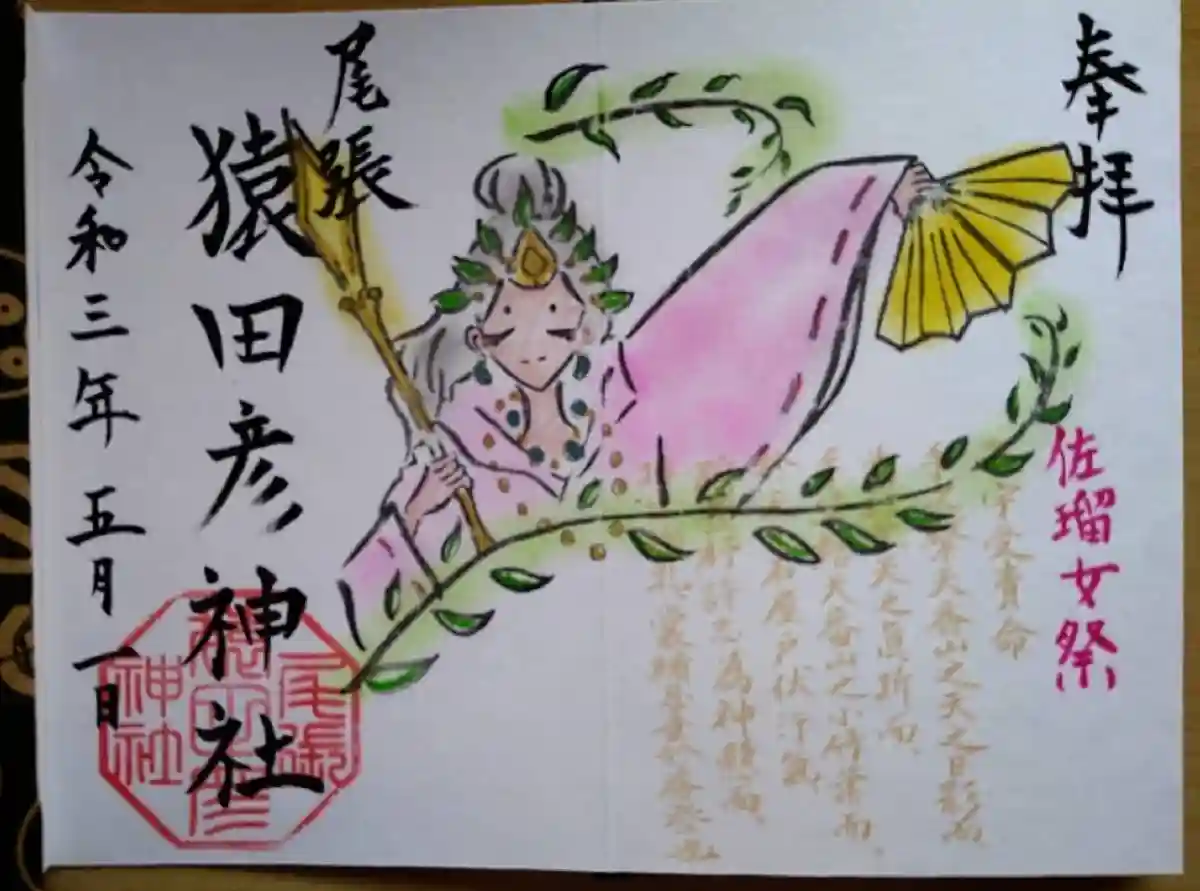 奉拝
佐瑠女祭
宇受賣命
天香山之天之日影而
天之真拆而、
天香山之小竹葉而、
屋戸伏汙氣
為神懸而、
尾張
猿田彦神社
令和三年五月一日
尾張
猿田彦
神社